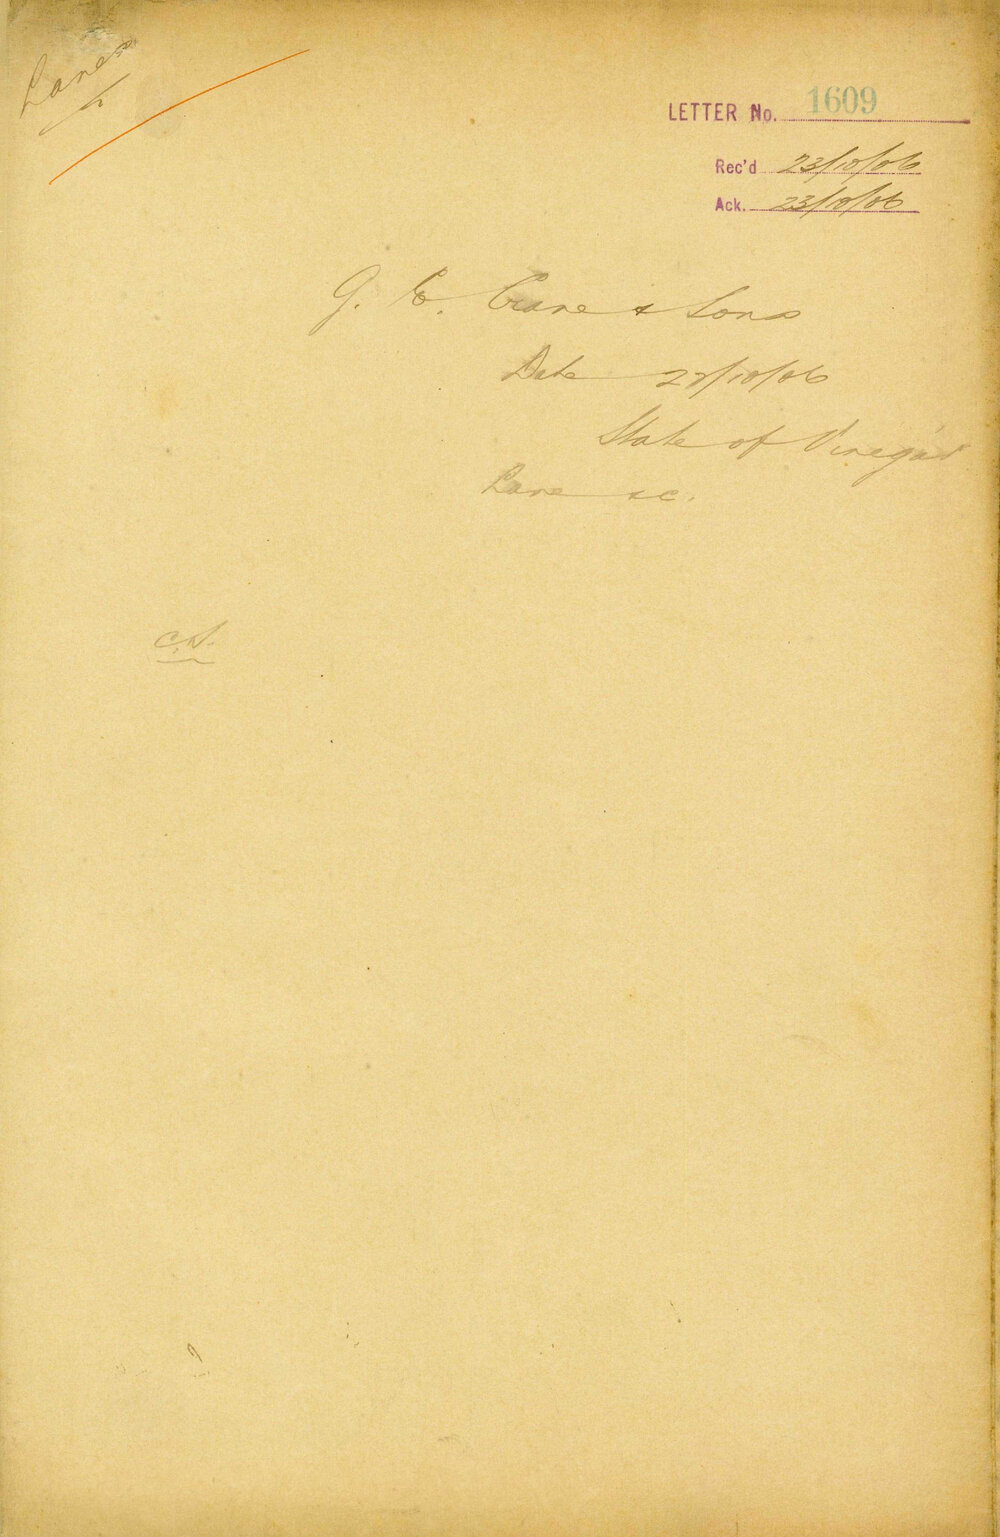 Lanes
LETTER No. 1609
Rec'd 23/10/06
Ack. 23/10/06
G. E. Crane & Sons
Date 22/10/06
State of Vinegar
Lane &c.